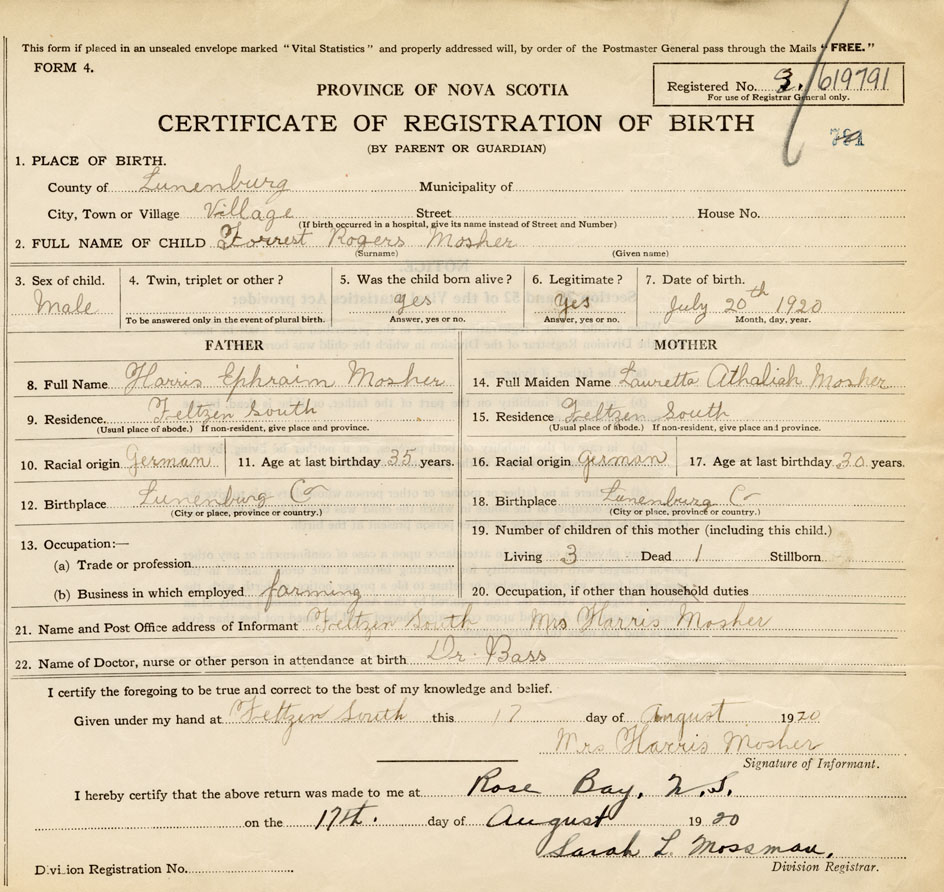 This form if placed in an unsealed envelope marked "Vital Statistics" and properly addressed will, by order of the Postmaster General pass through the Mails "FREE."
FORM 4.
Registered No. 3. 619791
For use of Registrar General only.
PROVINCE OF NOVA SCOTIA
CERTIFICATE OF REGISTRATION OF BIRTH
(BY PARENT OR GUARDIAN)
1. PLACE OF BIRTH.
County of Lunenburg Municipality of
City, Town or Village Village Street House No.
(If birth occurred in a hospital, give its name instead of Street and Number)
2. FULL NAME OF CHILD Forrest Rogers Mosher
(Surname) (Given name)
3. Sex of child. 4. Twin, triplet or other? 5. Was the child born alive? 6. Legitimate? 7. Date of birth.
Male yes Yes July 20th 1920
To be answered only in the event of plural birth. Answer, yes or no. Answer, yes or no. Month, day, year.
FATHER MOTHER
8. Full Name Harris Ephraim Mosher 14. Full Maiden Name Lauretta Athaliah Mosher
9. Residence. Feltzen South 15. Residence Feltzen South
(Usual place of abode.) If non-resident, give place and province. (Usual place of abode.) If non-resident, give place and province.
10. Racial origin German 11. Age at last birthday 35 years. 16. Racial origin German 17. Age at last birthday 30 years.
12. Birthplace Lunenburg Co 18. Birthplace Lunenburg Co
(City or place, province or country.) (City or place, province or country.)
13. Occupation:— 19. Number of children of this mother (including this child.)
(a) Trade or profession. Living 3 Dead 1 Stillborn
(b) Business in which employed farming 20. Occupation, if other than household duties
21. Name and Post Office address of Informant Feltzen South Mrs Harris Mosher
22. Name of Doctor, nurse or other person in attendance at birth Dr. Bass
I certify the foregoing to be true and correct to the best of my knowledge and belief.
Given under my hand at Feltzen South this 17 day of August 1920
Mrs Harris Mosher
Signature of Informant.
I hereby certify that the above return was made to me at Rose Bay, N.S.
on the 17th. day of August 1920
Sarah L. Mossman,
Division Registration No. Division Registrar.